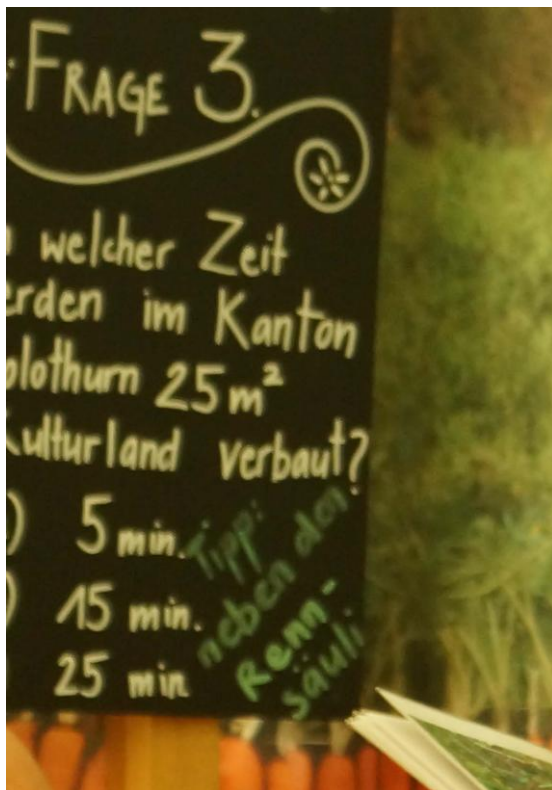 FRAGE 3.
welcher Zeit
erden im Kanton
olothurn 25 m²
Kulturland verbaut?
) 5 min.
) 15 min.
25 min
Tipp:
neben den
Renn-
säuli